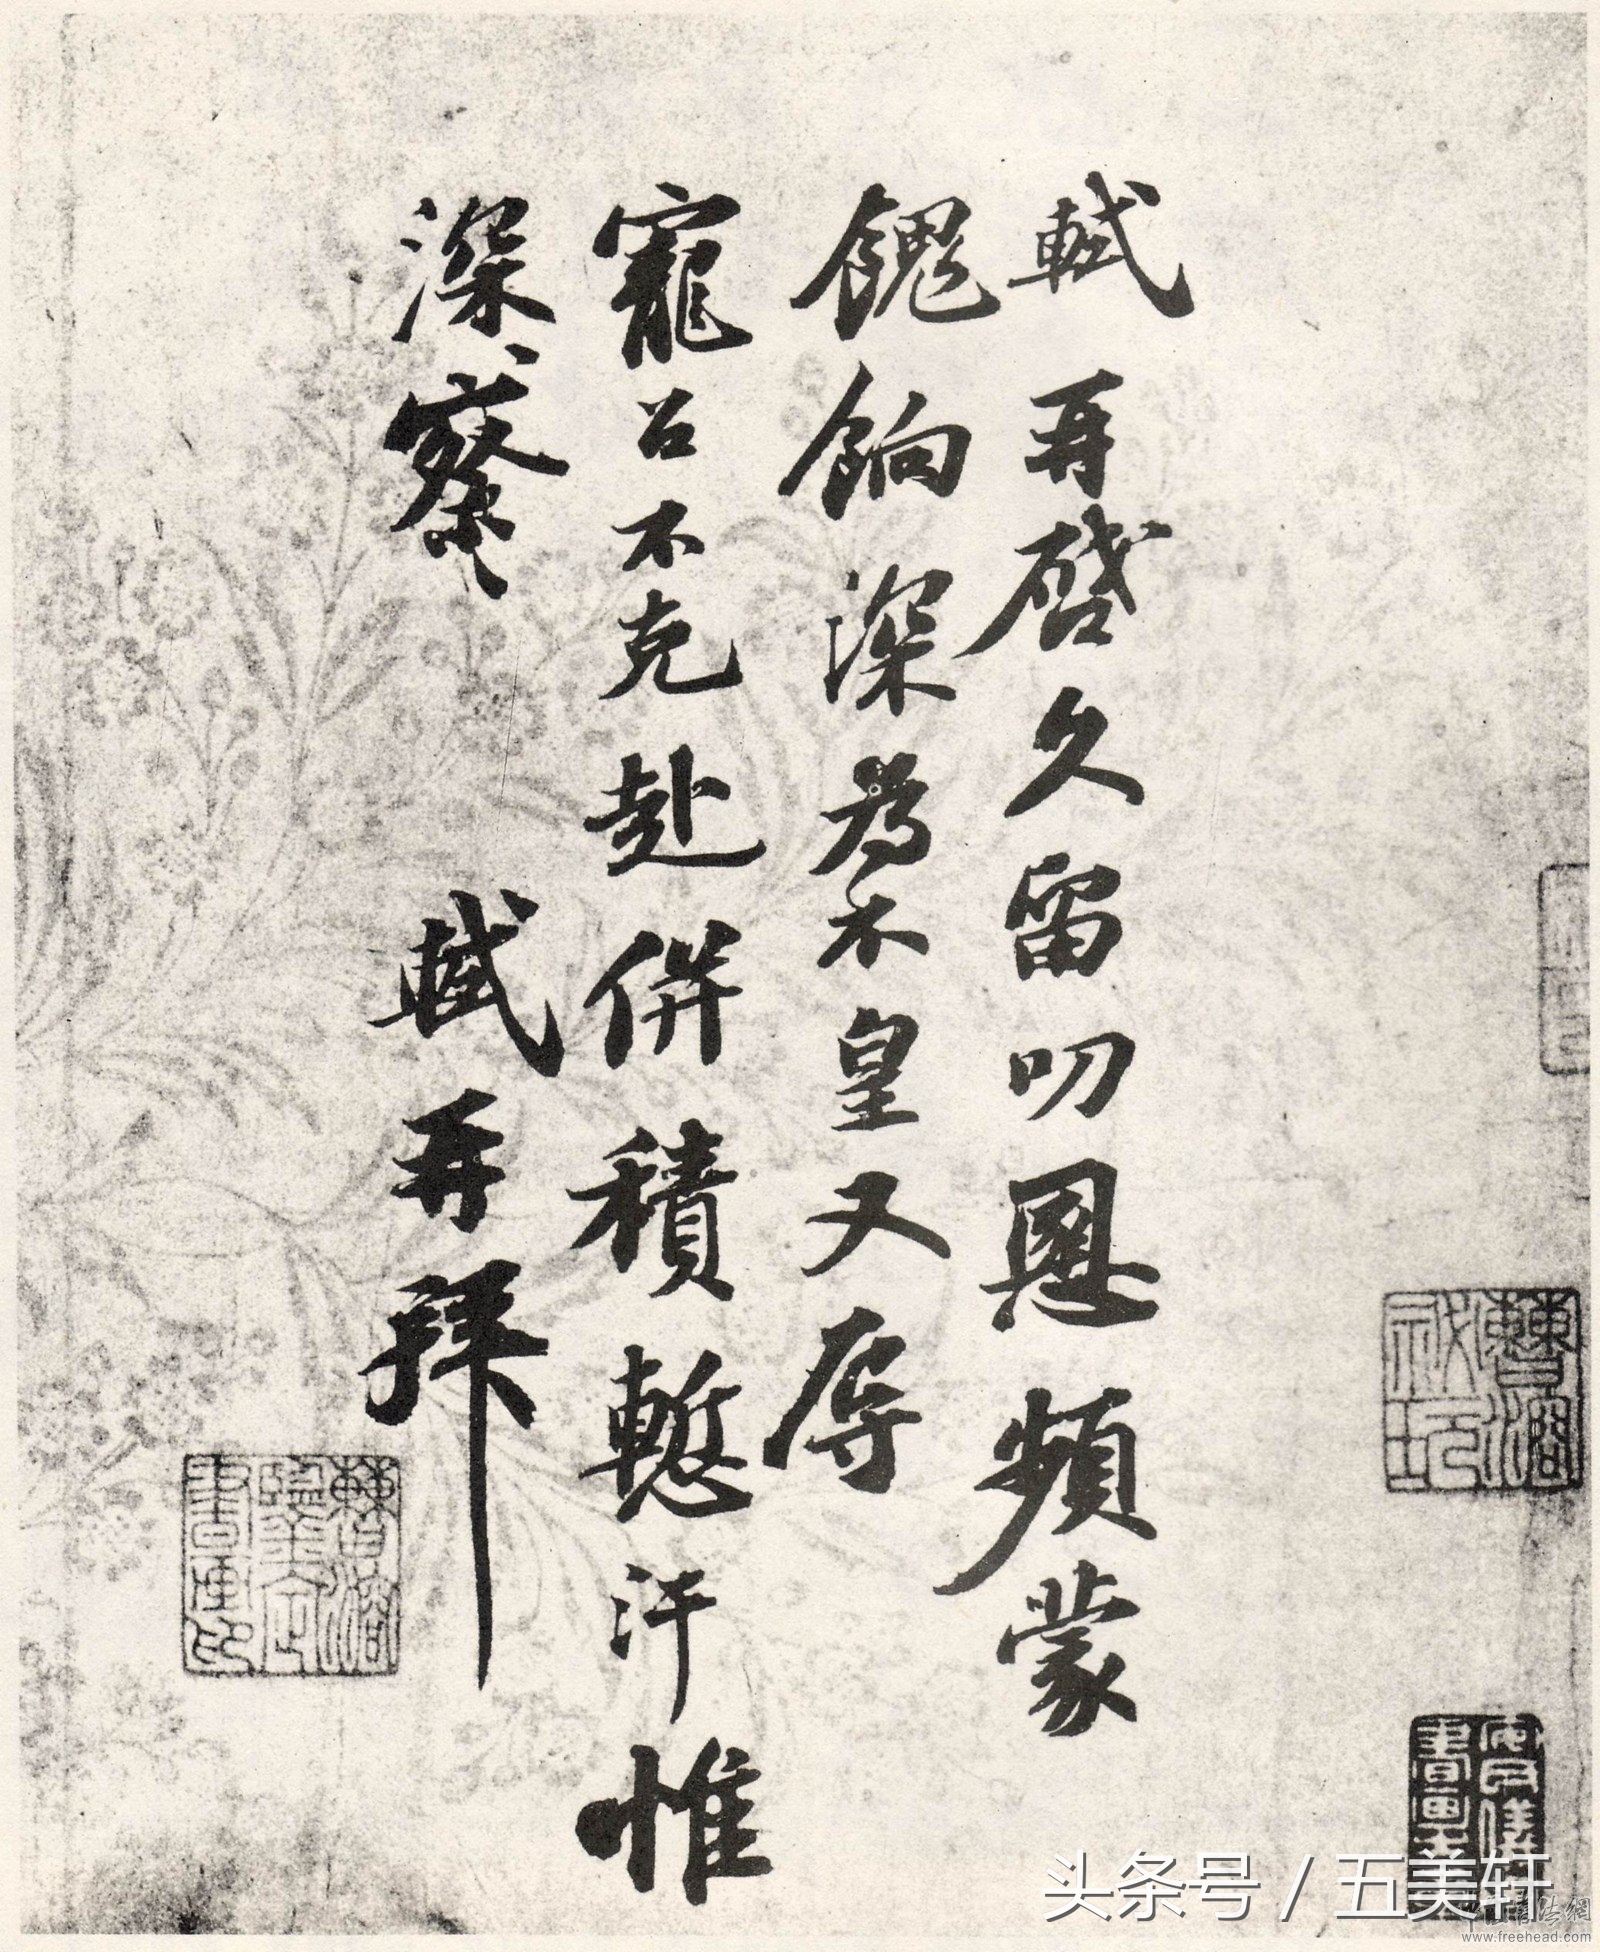 軾再啓久留叨恩頻蒙
餽餉深為不皇又辱
寵召不克赴併積慙汗惟
深察
軾再拜
頭条号 / 五美轩
www.freehead.com